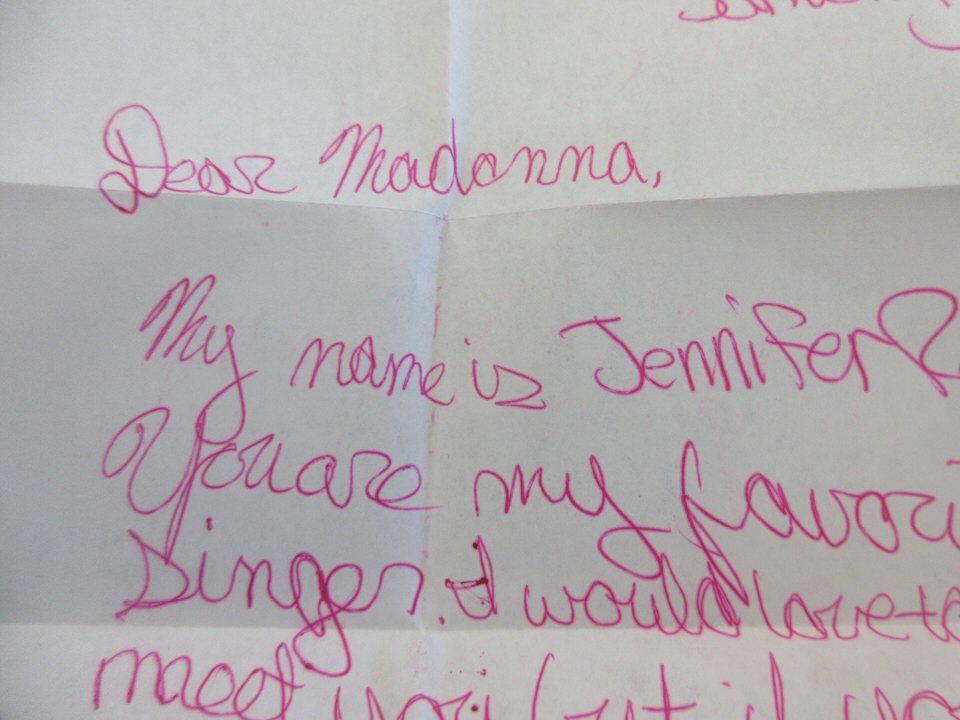 Dear Madonna,
My name is Jennifer R
You are my favori
Singer. I would love to
meet you but if yo